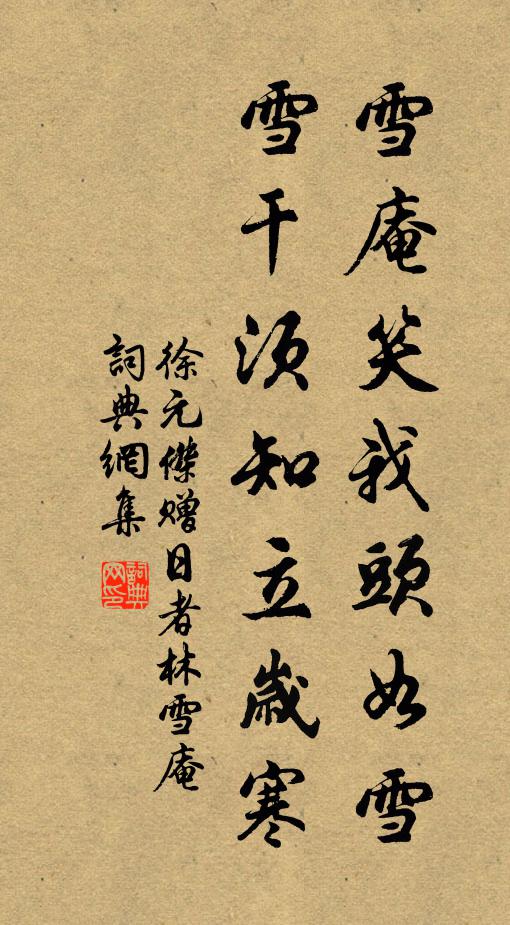 雪庵笑我頭如雪
雪干須知立歲寒
徐元傑贈日者林雪庵
詞典網集
詞典網印